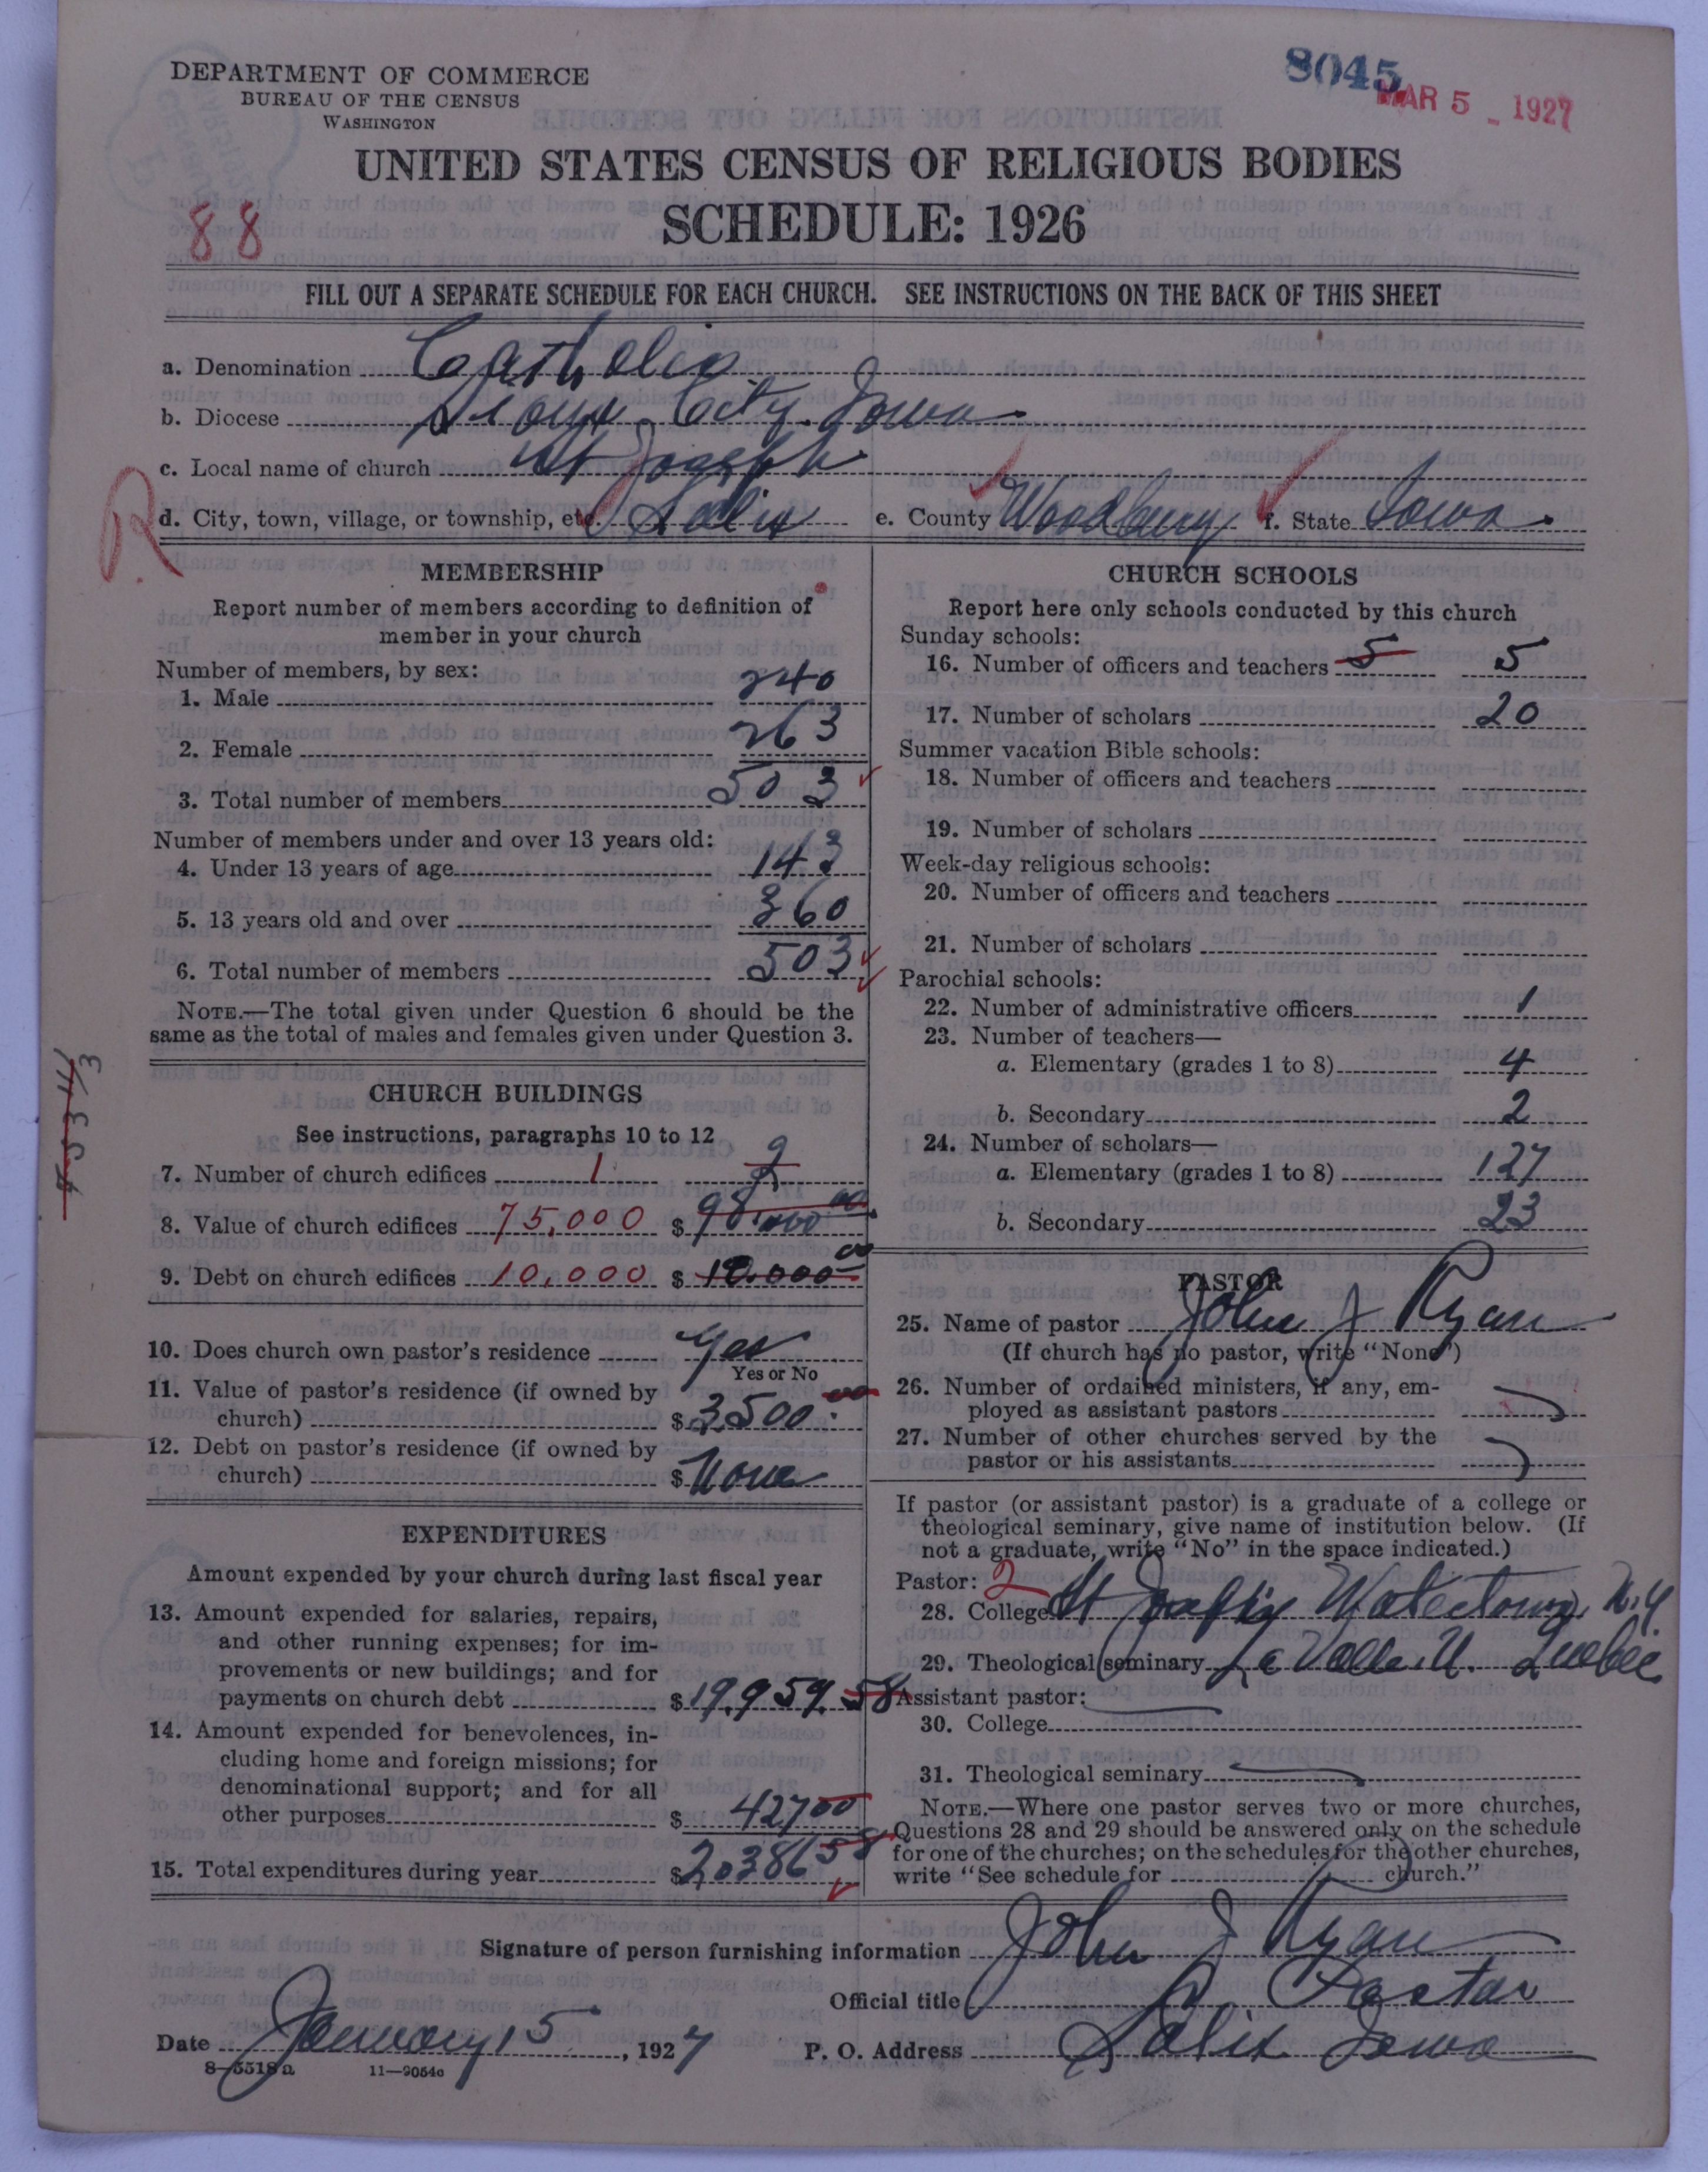 8045
MAR 5 - 1927
DEPARTMENT OF COMMERCE
BUREAU OF THE CENSUS
WASHINGTON
UNITED STATES CENSUS OF RELIGIOUS BODIES
SCHEDULE: 1926
88
FILL OUT A SEPARATE SCHEDULE FOR EACH CHURCH. SEE INSTRUCTIONS ON THE BACK OF THIS SHEET
a. Denomination Catholic
b. Diocese Sioux City. Iowa.
c. Local name of church St Joseph
R
d. City, town, village, or township, etc. Salix e. County Woodbury f. State Iowa.
MEMBERSHIP
Report number of members according to definition of
member in your church
Number of members, by sex:
1. Male 240
2. Female 263
3. Total number of members 503
Number of members under and over 13 years old:
4. Under 13 years of age 143
5. 13 years old and over 360
6. Total number of members 503
NOTE.—The total given under Question 6 should be the
same as the total of males and females given under Question 3.
CHURCH BUILDINGS
See instructions, paragraphs 10 to 12
7. Number of church edifices 1 2
8. Value of church edifices 75,000 $ 98,000 00
9. Debt on church edifices 10,000 $ 10.000 00
10. Does church own pastor's residence Yes
Yes or No
11. Value of pastor's residence (if owned by
church) $ 3500.00
12. Debt on pastor's residence (if owned by
church) $ None
EXPENDITURES
Amount expended by your church during last fiscal year
13. Amount expended for salaries, repairs,
and other running expenses; for im-
provements or new buildings; and for
payments on church debt $ 19,959.58
14. Amount expended for benevolences, in-
cluding home and foreign missions; for
denominational support; and for all
other purposes $ 427 00
15. Total expenditures during year $ 20386 58
CHURCH SCHOOLS
Report here only schools conducted by this church
Sunday schools:
16. Number of officers and teachers 5 5
17. Number of scholars 20
Summer vacation Bible schools:
18. Number of officers and teachers
19. Number of scholars
Week-day religious schools:
20. Number of officers and teachers
21. Number of scholars
Parochial schools:
22. Number of administrative officers 1
23. Number of teachers—
a. Elementary (grades 1 to 8) 4
b. Secondary 2
24. Number of scholars—
a. Elementary (grades 1 to 8) 127
b. Secondary 23
PASTOR
25. Name of pastor John J Ryan
(If church has no pastor, write "None")
26. Number of ordained ministers, if any, em-
ployed as assistant pastors
27. Number of other churches served by the
pastor or his assistants
If pastor (or assistant pastor) is a graduate of a college or
theological seminary, give name of institution below. (If
not a graduate, write "No" in the space indicated.)
Pastor: 2
28. College St Watertown, N.Y
29. Theological seminary La Valle. U. Quebec
Assistant pastor:
30. College
31. Theological seminary
NOTE.—Where one pastor serves two or more churches,
Questions 28 and 29 should be answered only on the schedule
for one of the churches; on the schedules for the other churches,
write "See schedule for church."
Signature of person furnishing information John J Ryan
Official title Pastor
Date January 15, 1927 P. O. Address Salix Iowa
8—5518a 11—9054c